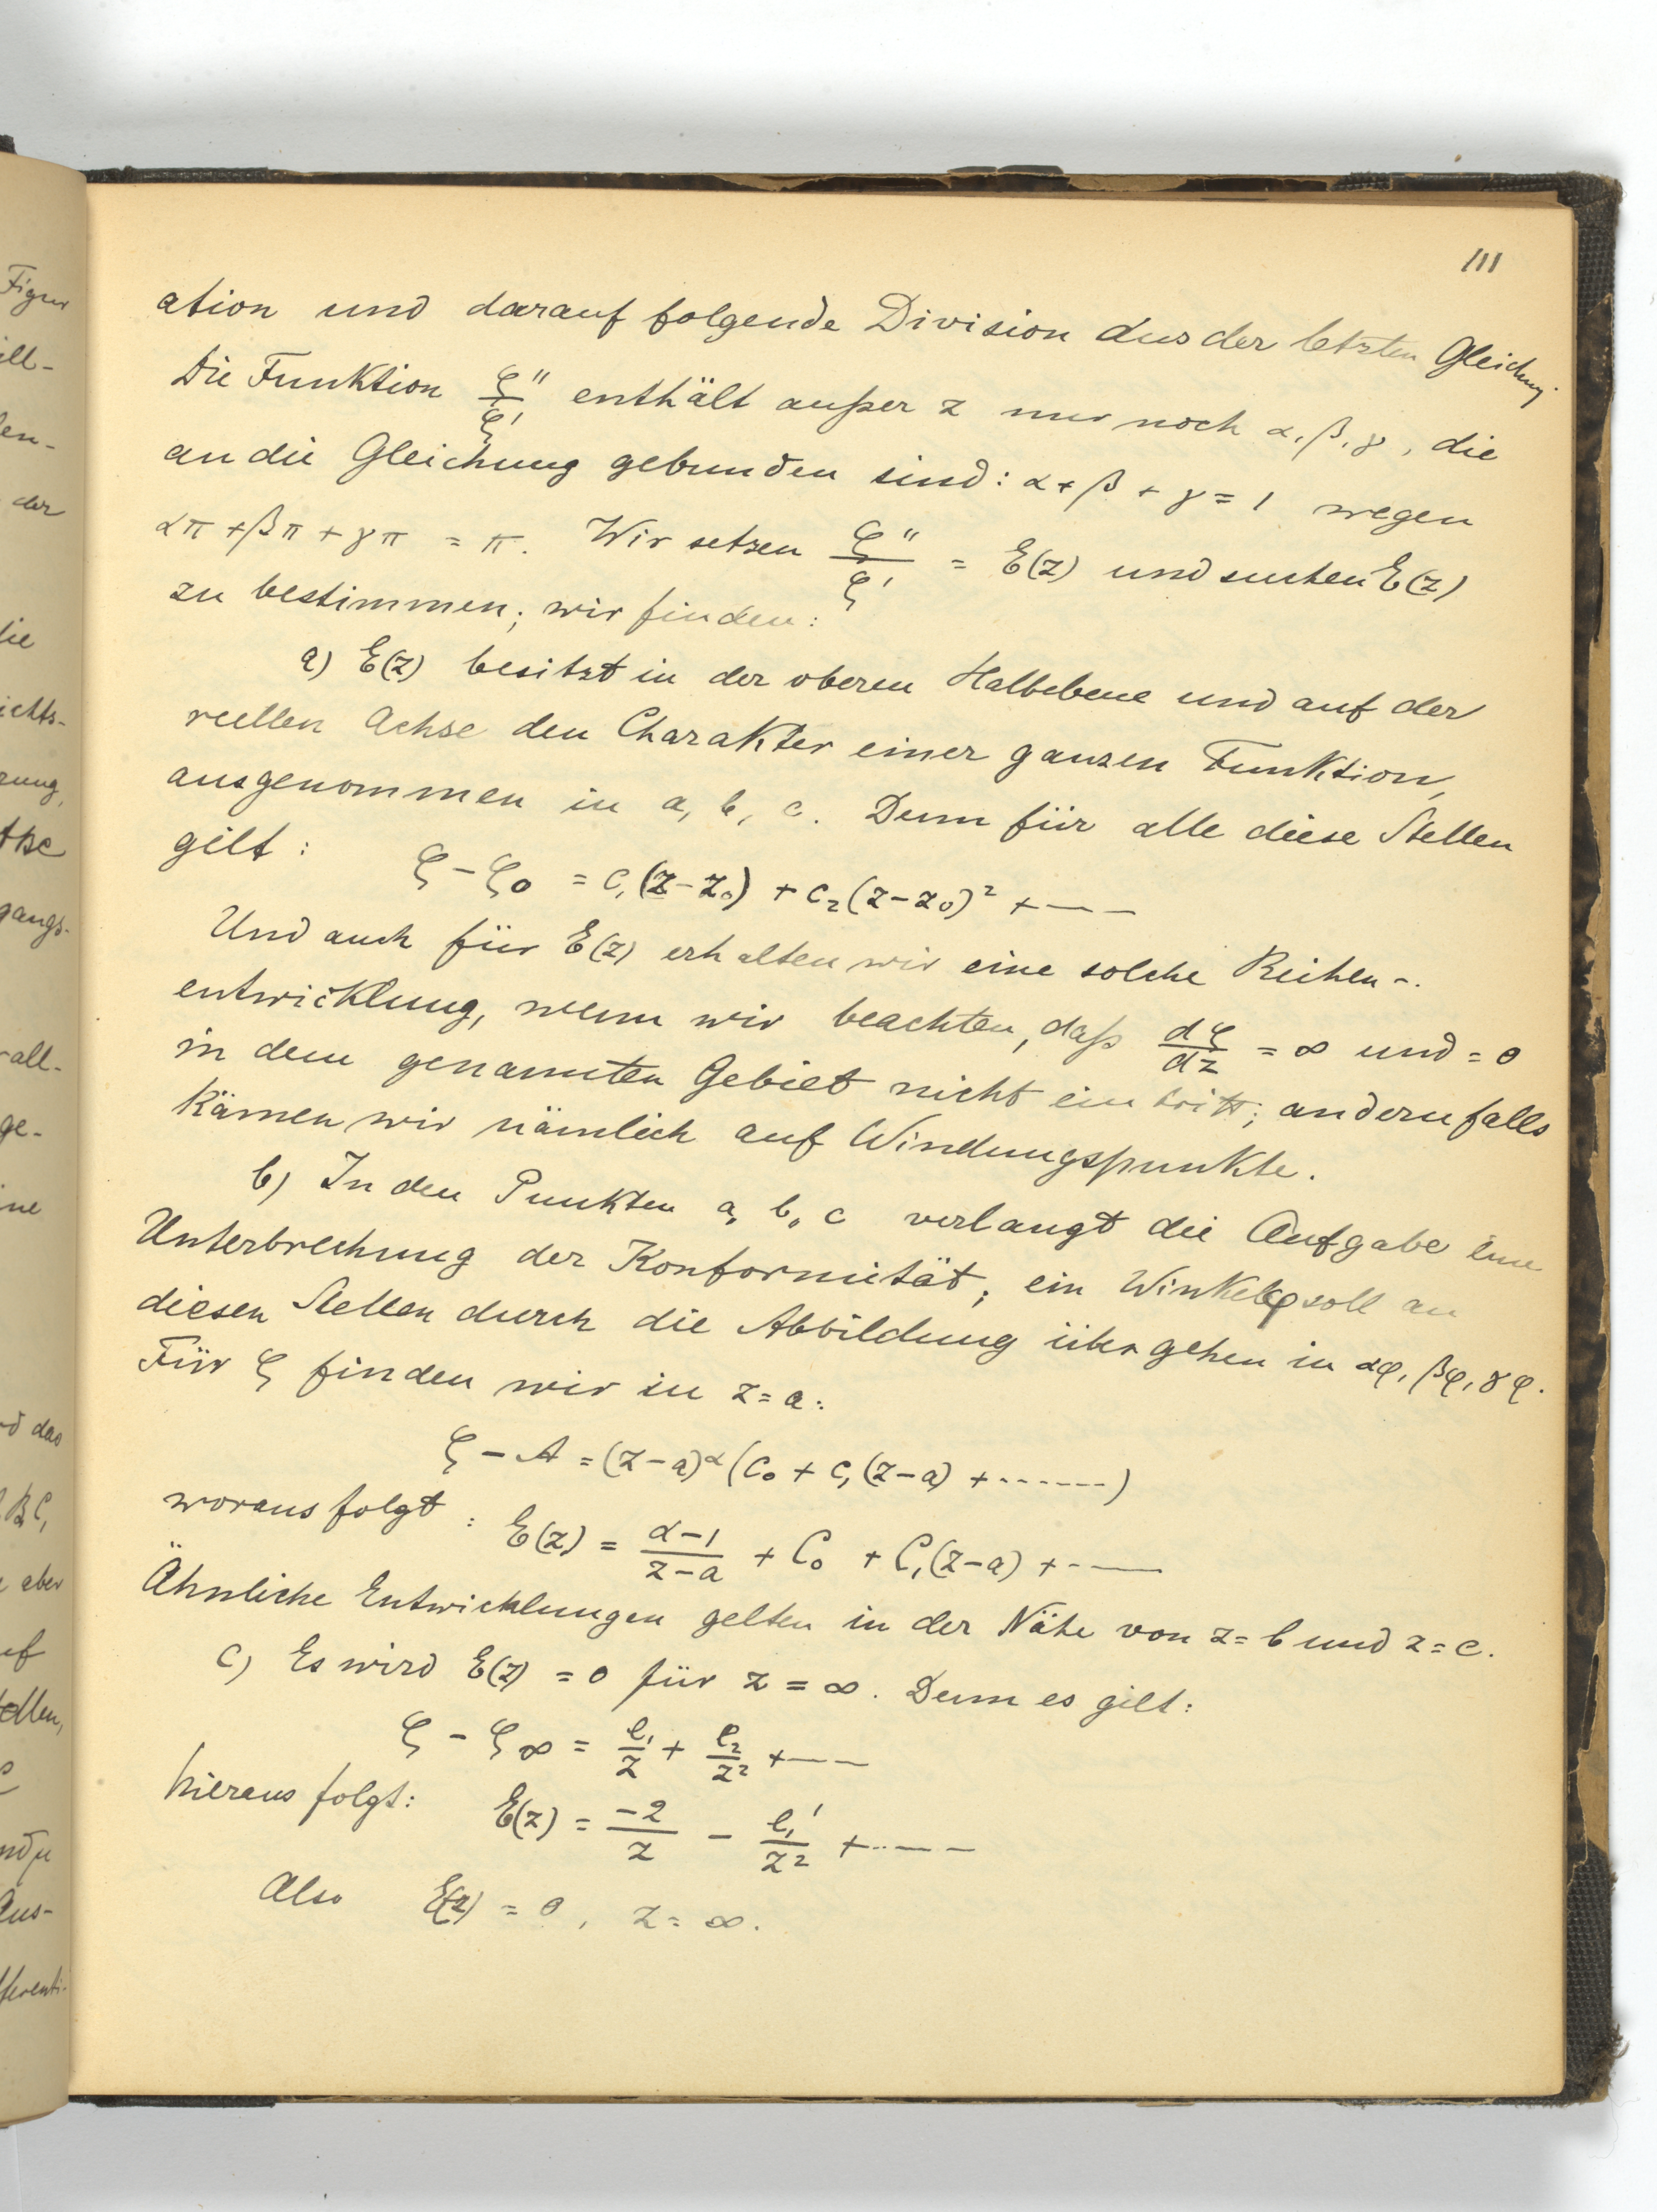 111
ation und darauf folgende Division aus der letzten Gleichung
Die Funktion ζ''/ζ' enthält außer z nur noch α, β, γ, die
an die Gleichung gebunden sind: α + β + γ = 1 wegen
απ + βπ + γπ = π. Wir setzen ζ''/ζ' = E(z) und suchen E(z)
zu bestimmen; wir finden:
a) E(z) besitzt in der oberen Halbebene und auf der
reellen Achse den Charakter einer ganzen Funktion,
ausgenommen in a, b, c. Denn für alle diese Stellen
gilt: ζ - ζ₀ = c₁(z-z₀) + c₂(z-z₀)² + ---
Und auch für E(z) erhalten wir eine solche Reihen-
entwicklung, wenn wir beachten, daß dζ/dz = ∞ und = 0
in dem genannten Gebiet nicht eintritt; andernfalls
kämen wir nämlich auf Windungspunkte.
b) In den Punkten a, b, c verlangt die Aufgabe eine
Unterbrechung der Konformität; ein Winkel φ soll an
diesen Stellen durch die Abbildung übergehen in αφ, βφ, γφ.
Für ζ finden wir in z = a:
ζ - A = (z-a)^α (c₀ + c₁(z-a) + ------)
woraus folgt: E(z) = (α-1)/(z-a) + C₀ + C₁(z-a) + ---
Ähnliche Entwicklungen gelten in der Nähe von z = b und z = c.
c) Es wird E(z) = 0 für z = ∞. Denn es gilt:
ζ - ζ∞ = e₁/z + e₂/z² + ---
hieraus folgt: E(z) = -2/z - e₁'/z² + ----
Also E(z) = 0, z = ∞.
Figur
ill-
en-
der
ie
ichts-
rung,
gangs-
all-
ge-
ne
d das
BC,
aber
uf
ellen,
Aus-
fferenti-